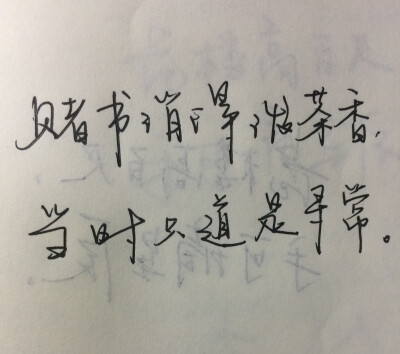 赌书消得泼茶香,
当时只道是寻常。